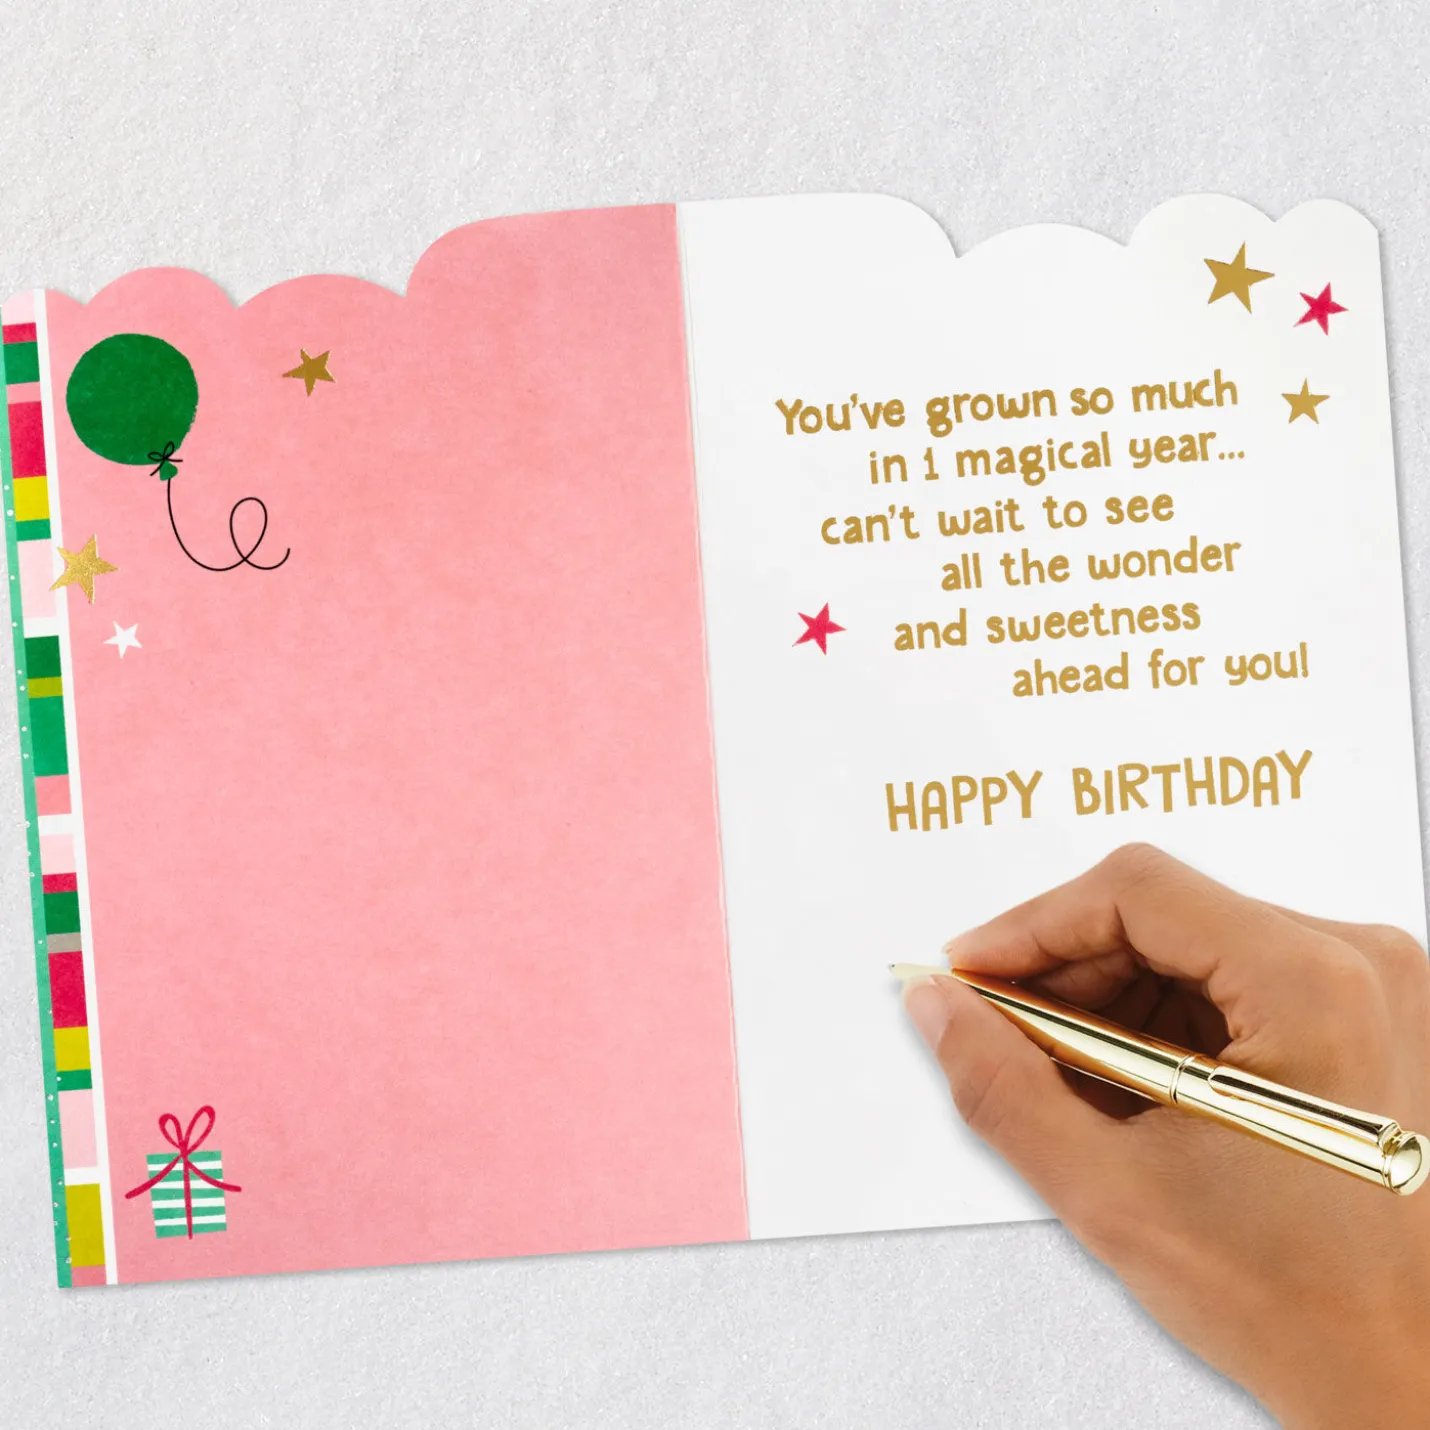 You've grown so much
in 1 magical year...
can't wait to see
all the wonder
and sweetness
ahead for you!
HAPPY BIRTHDAY